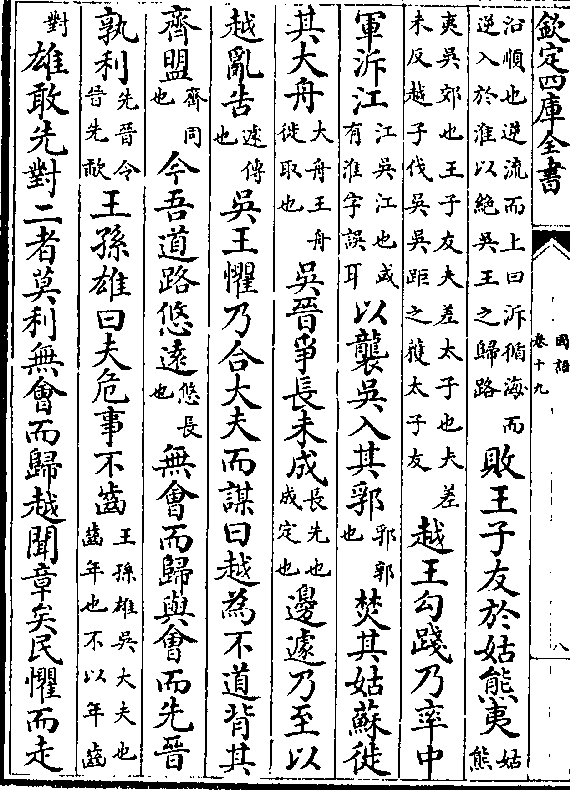 欽定四庫全書
國語
卷十九
八
沿順也逆流而上曰泝循海而逆入於淮以絶吳王之歸路敗王子友於姑熊夷姑熊
夷吳郊也王子友夫差太子也夫差未反越子伐吳吳距之獲太子友越王勾踐乃率中
軍泝江江吳江也或有淮字誤耳以襲吳入其郛郛郭也焚其姑蘇徙
其大舟大舟王舟徙取也吳晉爭長未成長先也成定也邊遽乃至以
越亂告遽傳也吳王懼乃合大夫而謀曰越為不道背其
齊盟齊同也今吾道路悠遠悠長也無會而歸與會而先晉
孰利先晉令晉先歃王孫雄曰夫危事不齒王孫雄吳大夫也齒年也不以年齒
對雄敢先對二者莫利無會而歸越聞章矣民懼而走